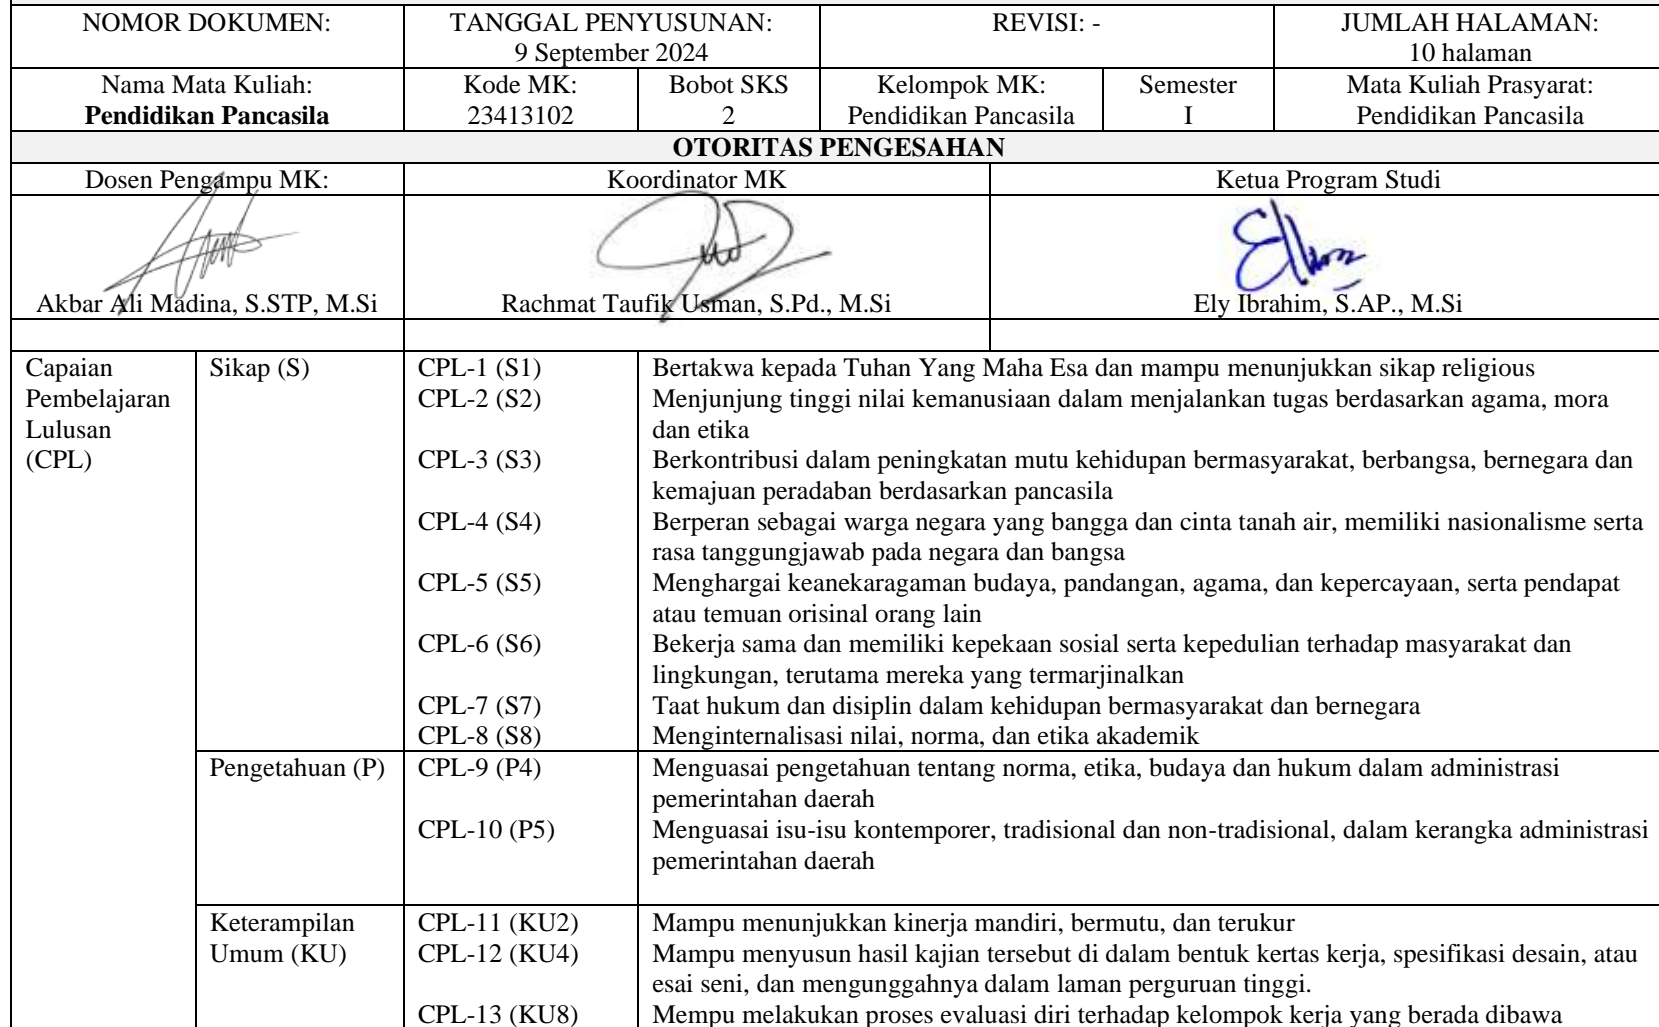 NOMOR DOKUMEN: TANGGAL PENYUSUNAN: REVISI: - JUMLAH HALAMAN:
9 September 2024 10 halaman
Nama Mata Kuliah: Kode MK: Bobot SKS Kelompok MK: Semester Mata Kuliah Prasyarat:
Pendidikan Pancasila 23413102 2 Pendidikan Pancasila I Pendidikan Pancasila
OTORITAS PENGESAHAN
Dosen Pengampu MK: Koordinator MK Ketua Program Studi
Akbar Ali Madina, S.STP, M.Si Rachmat Taufik Usman, S.Pd., M.Si Ely Ibrahim, S.AP., M.Si
Capaian Sikap (S) CPL-1 (S1) Bertakwa kepada Tuhan Yang Maha Esa dan mampu menunjukkan sikap religious
Pembelajaran CPL-2 (S2) Menjunjung tinggi nilai kemanusiaan dalam menjalankan tugas berdasarkan agama, mora
Lulusan dan etika
(CPL) CPL-3 (S3) Berkontribusi dalam peningkatan mutu kehidupan bermasyarakat, berbangsa, bernegara dan
kemajuan peradaban berdasarkan pancasila
CPL-4 (S4) Berperan sebagai warga negara yang bangga dan cinta tanah air, memiliki nasionalisme serta
rasa tanggungjawab pada negara dan bangsa
CPL-5 (S5) Menghargai keanekaragaman budaya, pandangan, agama, dan kepercayaan, serta pendapat
atau temuan orisinal orang lain
CPL-6 (S6) Bekerja sama dan memiliki kepekaan sosial serta kepedulian terhadap masyarakat dan
lingkungan, terutama mereka yang termarjinalkan
CPL-7 (S7) Taat hukum dan disiplin dalam kehidupan bermasyarakat dan bernegara
CPL-8 (S8) Menginternalisasi nilai, norma, dan etika akademik
Pengetahuan (P) CPL-9 (P4) Menguasai pengetahuan tentang norma, etika, budaya dan hukum dalam administrasi
pemerintahan daerah
CPL-10 (P5) Menguasai isu-isu kontemporer, tradisional dan non-tradisional, dalam kerangka administrasi
pemerintahan daerah
Keterampilan CPL-11 (KU2) Mampu menunjukkan kinerja mandiri, bermutu, dan terukur
Umum (KU) CPL-12 (KU4) Mampu menyusun hasil kajian tersebut di dalam bentuk kertas kerja, spesifikasi desain, atau
esai seni, dan mengunggahnya dalam laman perguruan tinggi.
CPL-13 (KU8) Mempu melakukan proses evaluasi diri terhadap kelompok kerja yang berada dibawa